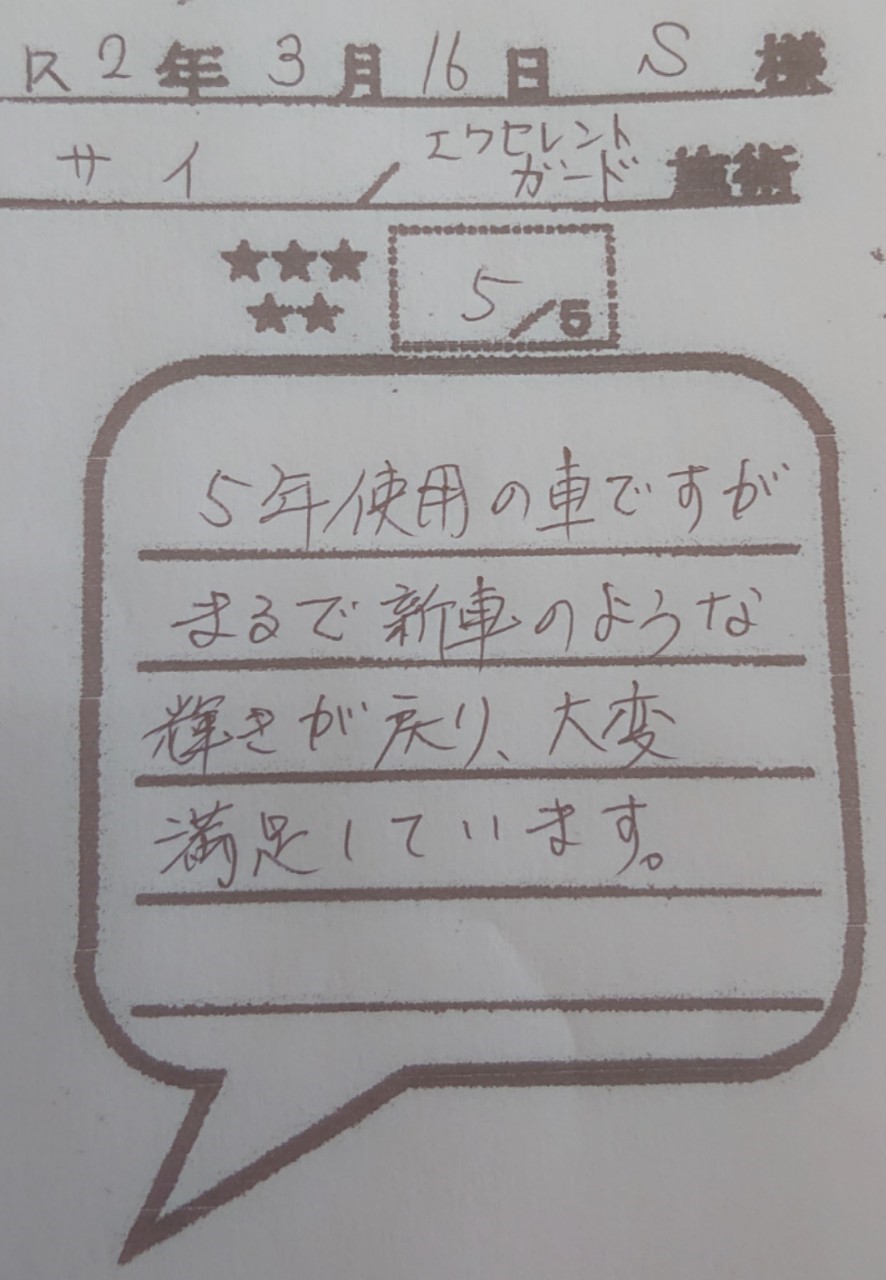 R2年3月16日 S様
サイ/エクセレントガード 施術
★★★
★★
5/5
5年使用の車ですが
まるで新車のような
輝きが戻り、大変
満足しています。